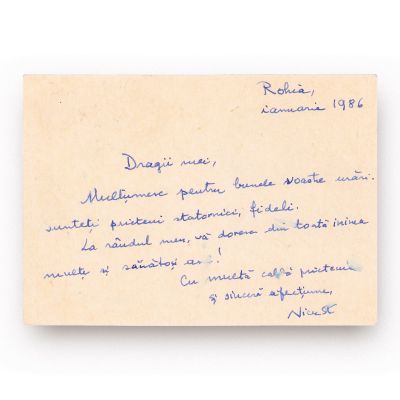 Rohia,
ianuarie 1986
Dragii mei,
Mulțumesc pentru bunele voastre urări.
sunteți prieteni statornici, fideli.
La rândul meu, vă doresc din toată inima
mulți și sănătoși ani!
Cu multă caldă prietenie
și sinceră afecțiune,